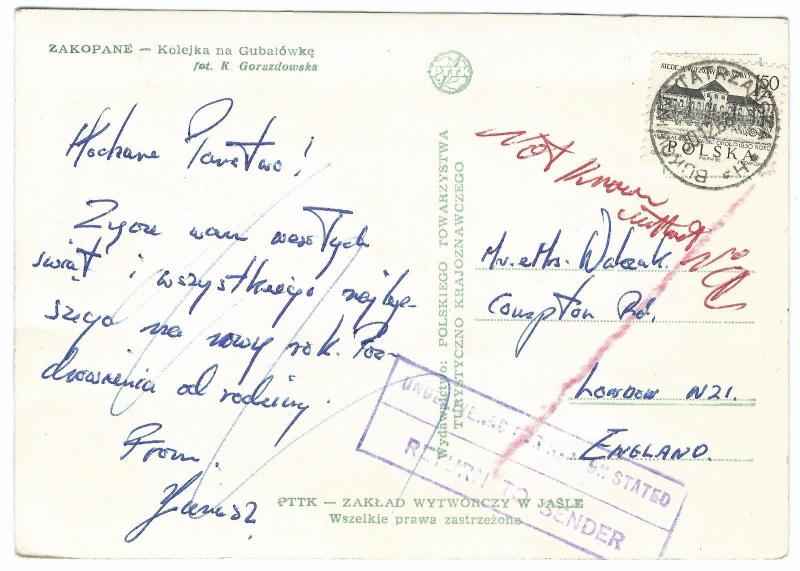 ZAKOPANE — Kolejka na Gubałówkę
fot. K. Gorazdowska
PTTK
Kochane Państwo!
Życzę wam wesołych
świąt i wszystkiego najlep-
szego na nowy rok. Poz-
drowienia od rodziny.
From
Janusz
Wydawnictwo: POLSKIEGO TOWARZYSTWA
TURYSTYCZNO KRAJOZNAWCZEGO
PTTK — ZAKŁAD WYTWÓRCZY W JAŚLE
Wszelkie prawa zastrzeżone
150
POLSKA
BUKOWINA TATRZAŃSKA
Not known
without No
Mr. & Mrs. Walczak.
Compton Rd.
LONDON N21.
ENGLAND.
UNDELIVERED FOR REASON STATED
RETURN TO SENDER